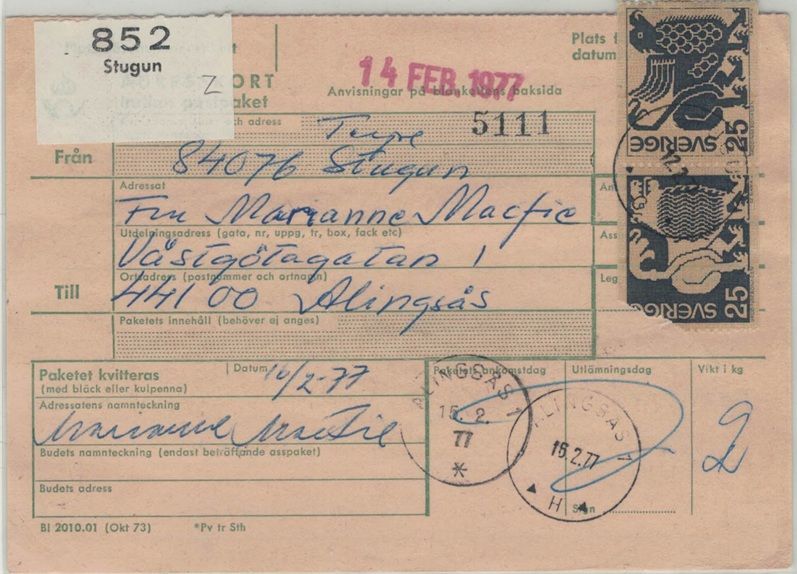 852
Stugun
Z
14 FEB. 1977
Plats f
datum
ORT
paket
Anvisningar på blankettens baksida
och adress
5111
Från
84076 Stugun
Adressat
Fru Marianne Macfie
Utdelningsadress (gata, nr, uppg, tr, box, fack etc)
Västgötagatan 1
Ortadress (postnummer och ortnamn)
Till
44100 Alingsås
Paketets innehåll (behöver ej anges)
An
Ass
Leg
SVERIGE 25
SVERIGE 25
Paketet kvitteras
(med bläck eller kulpenna)
Datum
16/2-77
Paketets ankomstdag
Utlämningsdag
Vikt i kg
2
Adressatens namnteckning
Marianne Macfie
ALINGSÅS 1
15.2.
77
*
ALINGSÅS 1
16.2.77
H
Sign
Budets namnteckning (endast beträffande asspaket)
Budets adress
Bl 2010.01 (Okt 73)
*Pv tr Sth